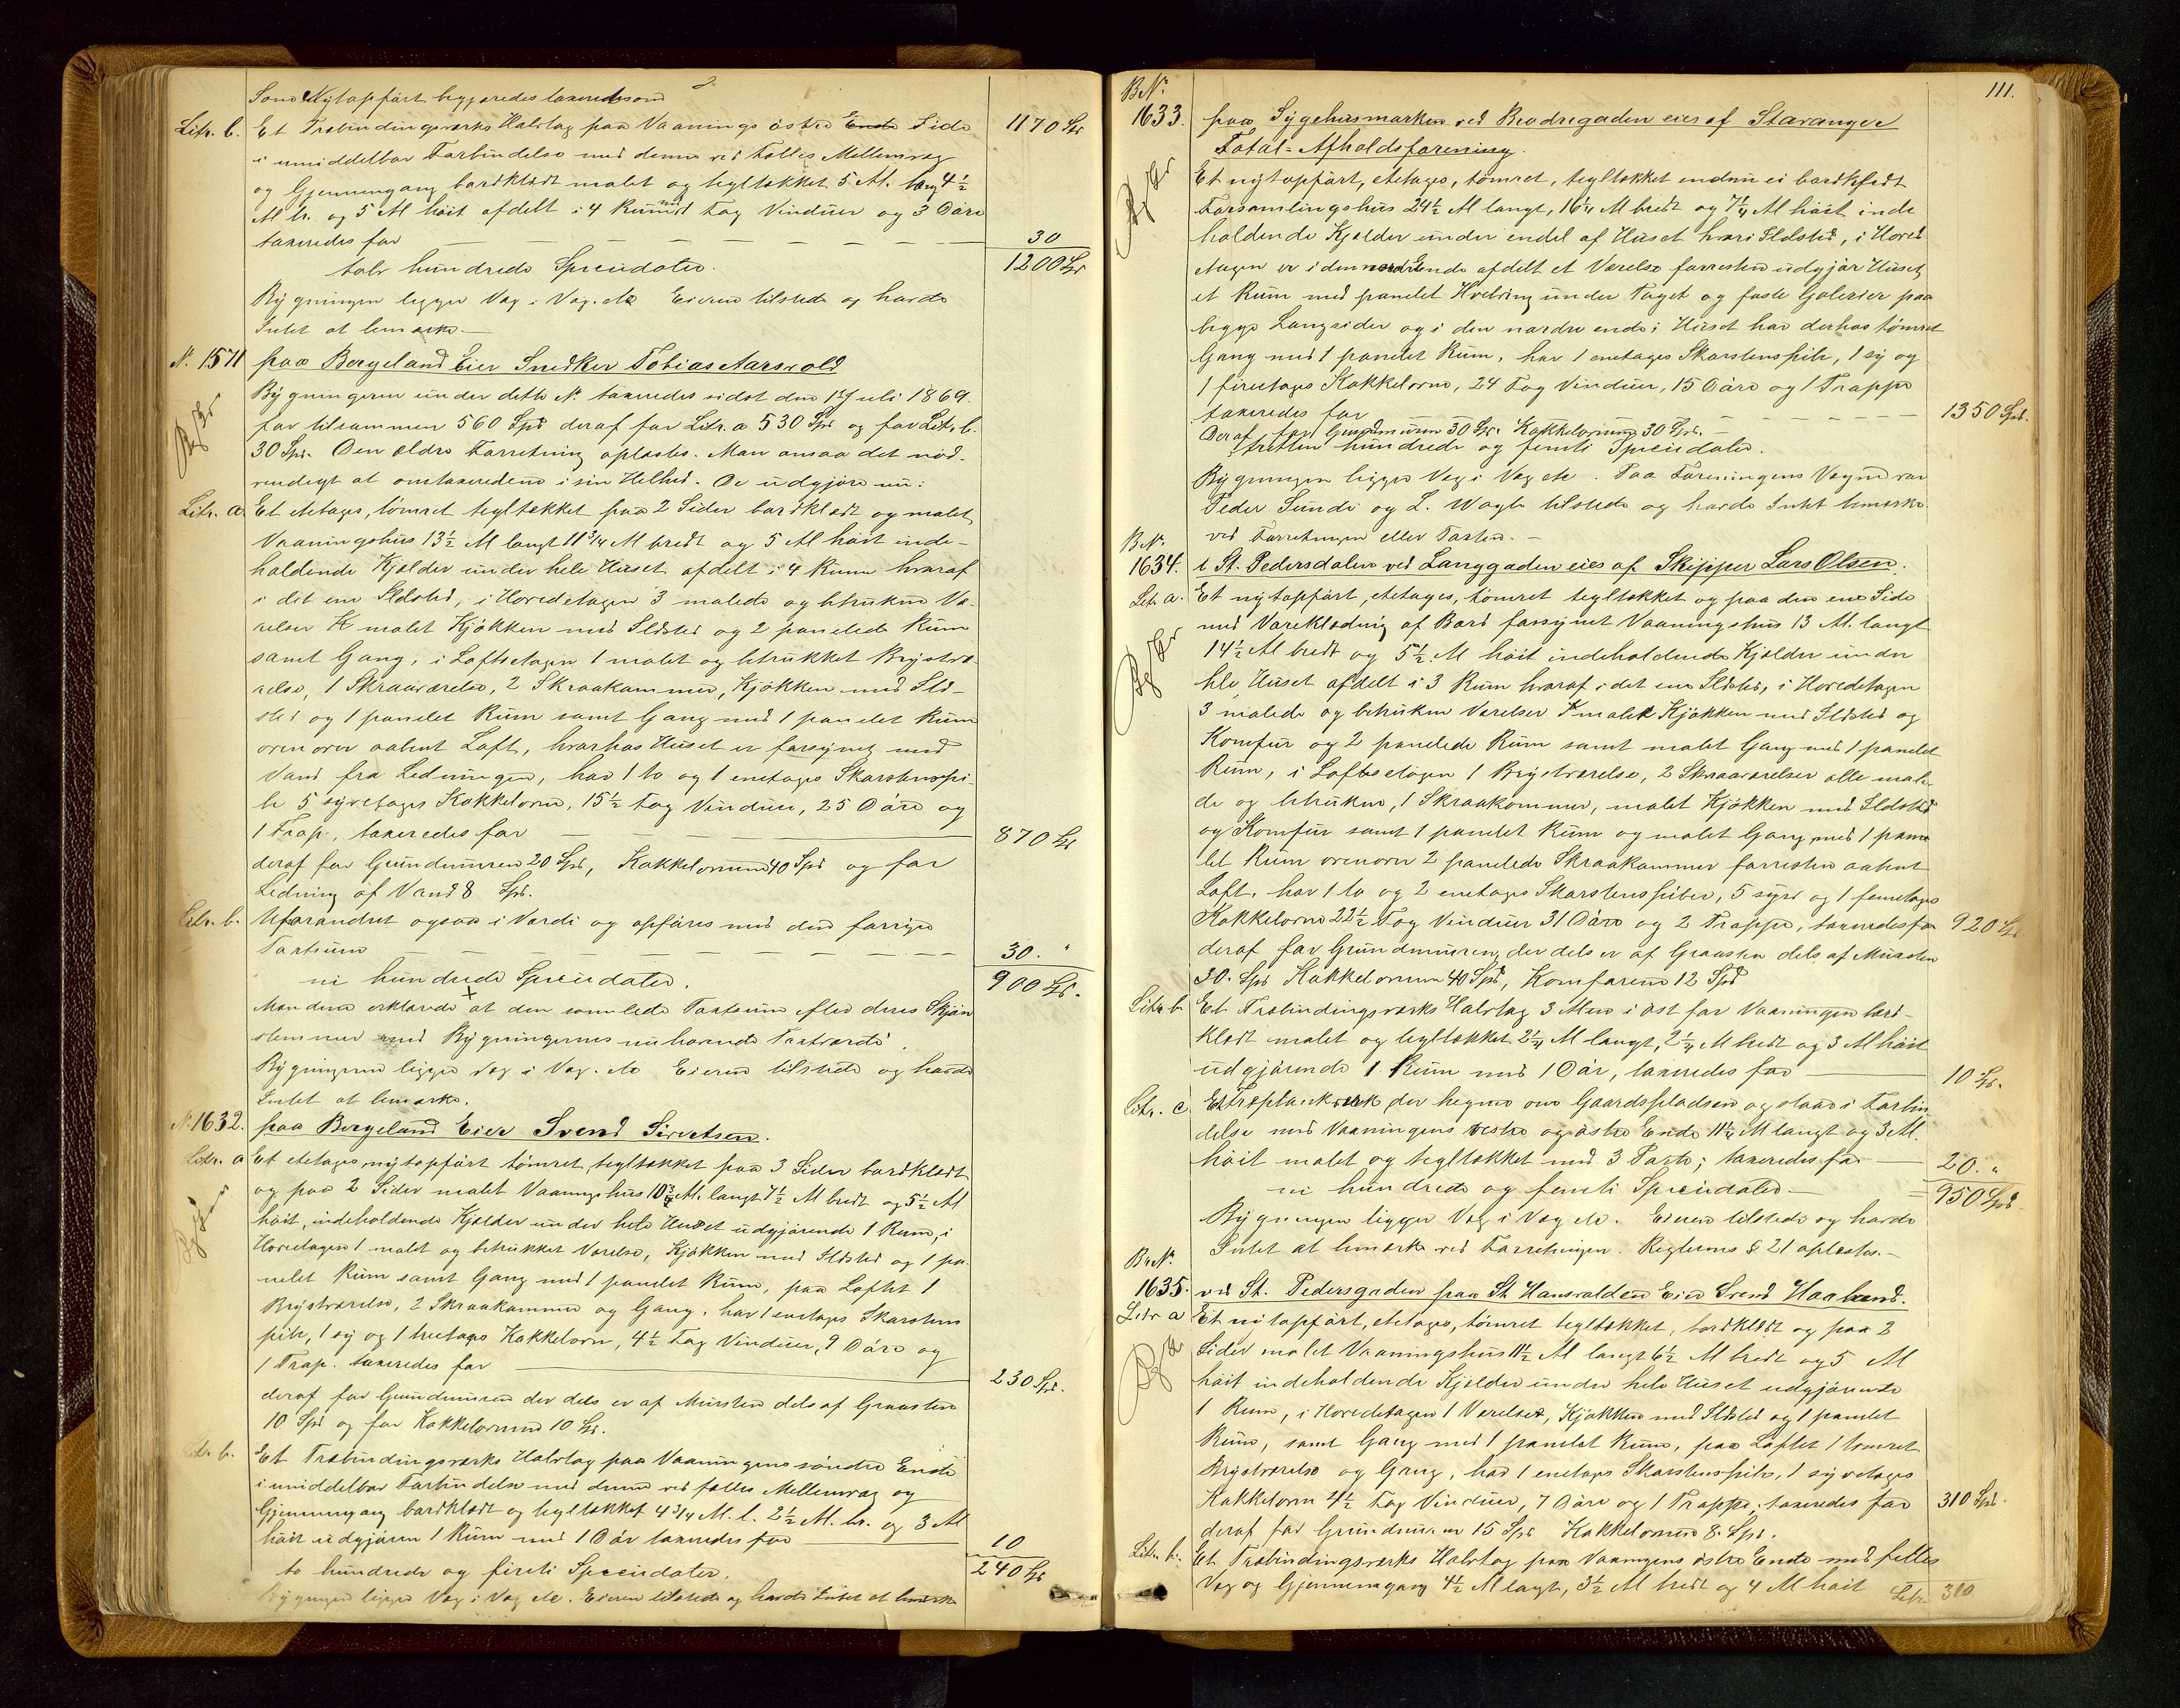 Som Nÿtopført begjæredes taxeret som
Litr. b. Et Træbindingsværks Halvtag paa Vaanings østre Ende Side 1170 Spd
i umiddelbar Forbindelse med denne ved fælles Mellemvæg
og Gjennemgang bordklædt malet og tegltækket 5 Al. lang 4½
Al br. og 5 Al høit afdelt i 4 Rum med Fag Vinduer og 3 Døre
taxeredes for — 30
tolv hundrede Speciedaler. 1200 Spd
Bÿgningen ligger Væg i Væg etc Eieren tilstede og havde
Intet at bemærke.—
N. 1571 paa Bergeland Eier Snedker Tobias Aarsvold
Bÿgningerne under dette N. taxeredes sidst den 1 Juli 1869.
for tilsammen 560 Spd deraf for Litr. a 530 Spd og for Litr. b.
30 Spd. Den ældre Forretning oplæstes. Man ansaa det nød-
vendigt at omtaxere dem i sin Helhed. De udgjøre nu:
Litr. a Et etetages, tømret tegltækket paa 2 Sider bordklædt og malet
Vaaningshus 13½ Al langt 11¾ Al bredt og 5 Al høit inde-
holdende Kjælder under hele Huset afdelt i 4 Rum hvoraf
i det ene Ildsted, i Hovedetagen 3 malede og betrukne Væ-
relser malet Kjøkken med Ildsted og 2 panelede Rum
samt Gang, i Loftsetagen 1 malet og betrukket Brÿstvæ-
relse, 1 Skraaværelse, 2 Skraakammer, Kjøkken med Ild-
sted og 1 panelet Rum samt Gang med 1 panelet Rum
ovenover aabent Loft, hvorhos Huset er forsÿnet med
Vand fra Ledningen, har 1 to og 1 enetages Skorstenspi-
be 5 sÿvetages Kakkelovne, 15½ Fag Vinduer, 25 Døre og
1 Trap., taxeredes for — 870 Spd
deraf for Grundmuren 20 Spd, Kakkelovnene 40 Spd og for
Ledning af Vand 8 Spd.
Litr. b. Uforandret ogsaa i Værdi og opføres med den forrige
Taxtsum — 30. "
ni hundrede Speciedaler. 900 Spd.
Mændene erklærede at den samlede Taxtsum efter deres Skjøn
stemmer med Bÿgningernes nuhavende Taxtværdi.
Bÿgningerne ligger Væg i Væg. etc Eieren tilstede og havde
Intet at bemærke.
N. 1632. paa Bergeland Eier Svend Sivertsen.
Litr. a Et etetages nÿtopført tømret, tegltækket paa 3 Sider bordklædt
og paa 2 Sider malet Vaaningshus 10¾ Al. langt 7½ Al bredt og 5½ Al
høit, indeholdende Kjælder under hele Huset udgjørende 1 Rum, i
Hovedetagen 1 malet og betrukket Værelse, Kjøkken med Ildsted og 1 pa-
nelet Rum samt Gang med 1 panelet Rum, paa Loftet 1
Brÿstværelse, 2 Skraakammer og Gang, har 1 enetages Skorstens
pibe, 1 sÿ og 1 treetages Kakkelovn, 4½ Fag Vinduer, 9 Døre og
1 Trap. taxeredes for — 230 Spd.
deraf for Grundmuren der dels er af Mursten dels af Graasten
10 Spd og for Kakkelovnene 10 Spd.
Litr. b. Et Træbindingsværks Halvtag paa Vaaningens søndre Ende
i umiddelbar Forbindelse med denne ved fælles Mellemvæg og
Gjennemgang bordklædt og tegltækket 4¾ Al. l. 2½ Al. br. og 3 Al
høit udgjørende 1 Rum med 1 Dør taxeredes for — 10
to hundrede og firti Speciedaler. 240 Spd
Bÿgningen ligger Væg i Væg etc. Eieren tilstede og havde Intet at bemærke
111.
B.N.
1633. paa Sÿgehusmarken ved Brodregaden eies af Stavanger
Total-Afholdsforening.
Et nÿtopført, etetages, tømret, tegltækket endnu ei bordklædt
Forsamlingshus 24½ Al langt, 16¼ Al bredt og 7¼ Al høit inde
holdende Kjælder under endel af Huset hvori Ildsted, i Hoved
etagen er i den nordre Ende afdelt et Værelse forresten udgjør Huset
et Rum med panelet Hvelving under Taget og faste Gallerier paa
begge Langsider og i den nordre ende i Huset har derhos tømret
Gang med 1 panelet Rum, har 1 enetages Skorstenspibe, 1 sÿ og
1 fireetages Kakkelovne, 24 Fag Vinduer, 15 Døre og 1 Trappe
taxeredes for — 1350 Spd.
Deraf for Grundmuren 30 Spd. Kakkelovnene 30 Spd.—
tretten hundrede og femti Speciedaler.
Bÿgningen ligger Væg i Væg etc. Paa Foreningens Vegne var
Peder Sunde og L. Wagle tilstede og havde Intet bemærke
ved Forretningen eller Taxten.—
B.N.
1634. i St. Pedersdalen ved Langgaden eies af Skipper Lars Olsen.
Litr. a. Et nÿtopført, etetages, tømret tegltækket og paa den ene Side
med Vareklædning af Bord forsÿnet Vaaningshus 13 Al. langt
14½ Al bredt og 5½ Al høit indeholdende Kjælder under
hele Huset afdelt i 3 Rum hvoraf i det ene Ildsted, i Hovedetagen
3 malede og betrukne Værelser malet Kjøkken med Ildsted og
Komfur og 2 panelede Rum samt malet Gang med 1 panelet
Rum, i Loftsetagen 1 Brÿstværelse, 2 Skraaværelser alle male
de og betrukne, 1 Skraakammer, malet Kjøkken med Ildsted
og Komfur samt 1 panelet Rum og malet Gang med 1 pane
let Rum ovenover 2 panelede Skraakammer forresten aabent
Loft, har 1 to og 2 enetages Skorstenspiber, 5 sÿv og 1 femetages
Kakkelovne 22½ Fag Vinduer 31 Døre og 2 Trapper, taxeredes for 920 Spd
deraf for Grundmuren, der dels er af Graasten dels af Mursten
30. Spd Kakkelovnene 40 Spd, Komfurene 12 Spd
Litr. b Et Træbindingsværks Halvtag 3 Alen i øst for Vaaningen bord-
klædt malet og tegltækket 2¼ Al langt, 2¼ Al bredt og 3 Al høit
udgjørende 1 Rum med 1 Dør, taxeredes for — 10 Spd.
Litr. c. Et Træplankeværk der hegner om Gaardspladsen og staar i Forbin
delse med Vaaningens vestre og østre Ende 11¼ Al langt og 3 Al.
høit malet og tegltækket med 3 Porte; taxeredes for — 20. "
ni hundrede og femti Speciedaler.— 950 Spd
Bÿgningen ligger Væg i Væg etc. Eieren tilstede og havde
Intet at bemærke ved Forretningen. Reglernes § 21 oplæstes.—
B.N.
1635. ved St. Pedersgaden paa St Hansvolden Eier Svend Haaland.
Litr a Et nÿtopført, etetages, tømret tegltækket, bordklædt og paa 2
Sider malet Vaaningshus 11½ Al langt 6½ Al bredt og 5 Al
høit indeholdende Kjælder under hele Huset udgjørende
1 Rum, i Hovedetagen 1 Værelse, Kjøkken med Ildsted og 1 panelet
Rum, samt Gang med 1 panelet Rum, paa Loftet 1 tømret
Brÿstværelse og Gang, har 1 enetages Skorstenspibe, 1 sÿvetages
Kakkelovn 4½ Fag Vinduer, 7 Døre og 1 Trappe, taxeredes for 310 Spd.
deraf for Grundmuren 15 Spd Kakkelovnen 8 Spd.
Litr. b. Et Træbindingsværks Halvtag paa Vaaningens østre Ende med fælles
Væg og Gjennemgang 4½ Al langt, 3½ Al bredt og 4 Al høit
Latr. 310